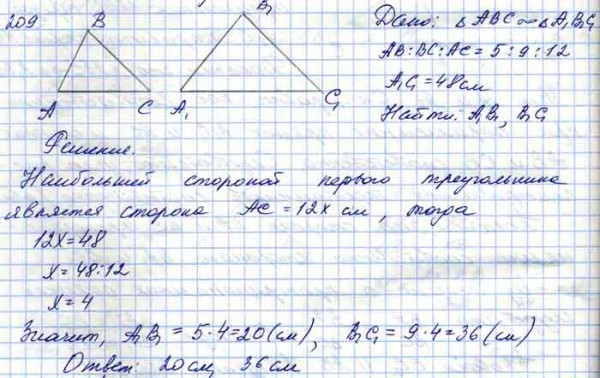 209
B
A
C
B₁
A₁
C₁
Дано: △ABC ∾ △A₁B₁C₁
AB:BC:AC = 5:9:12
A₁C₁ = 48 см
Найти: A₁B₁, B₁C₁
Решение.
Наибольшей стороной первого треугольника
является сторона AC = 12x см, тогда
12x = 48
x = 48:12
x = 4
Значит, A₁B₁ = 5·4=20 (см), B₁C₁ = 9·4=36 (см)
Ответ: 20 см, 36 см